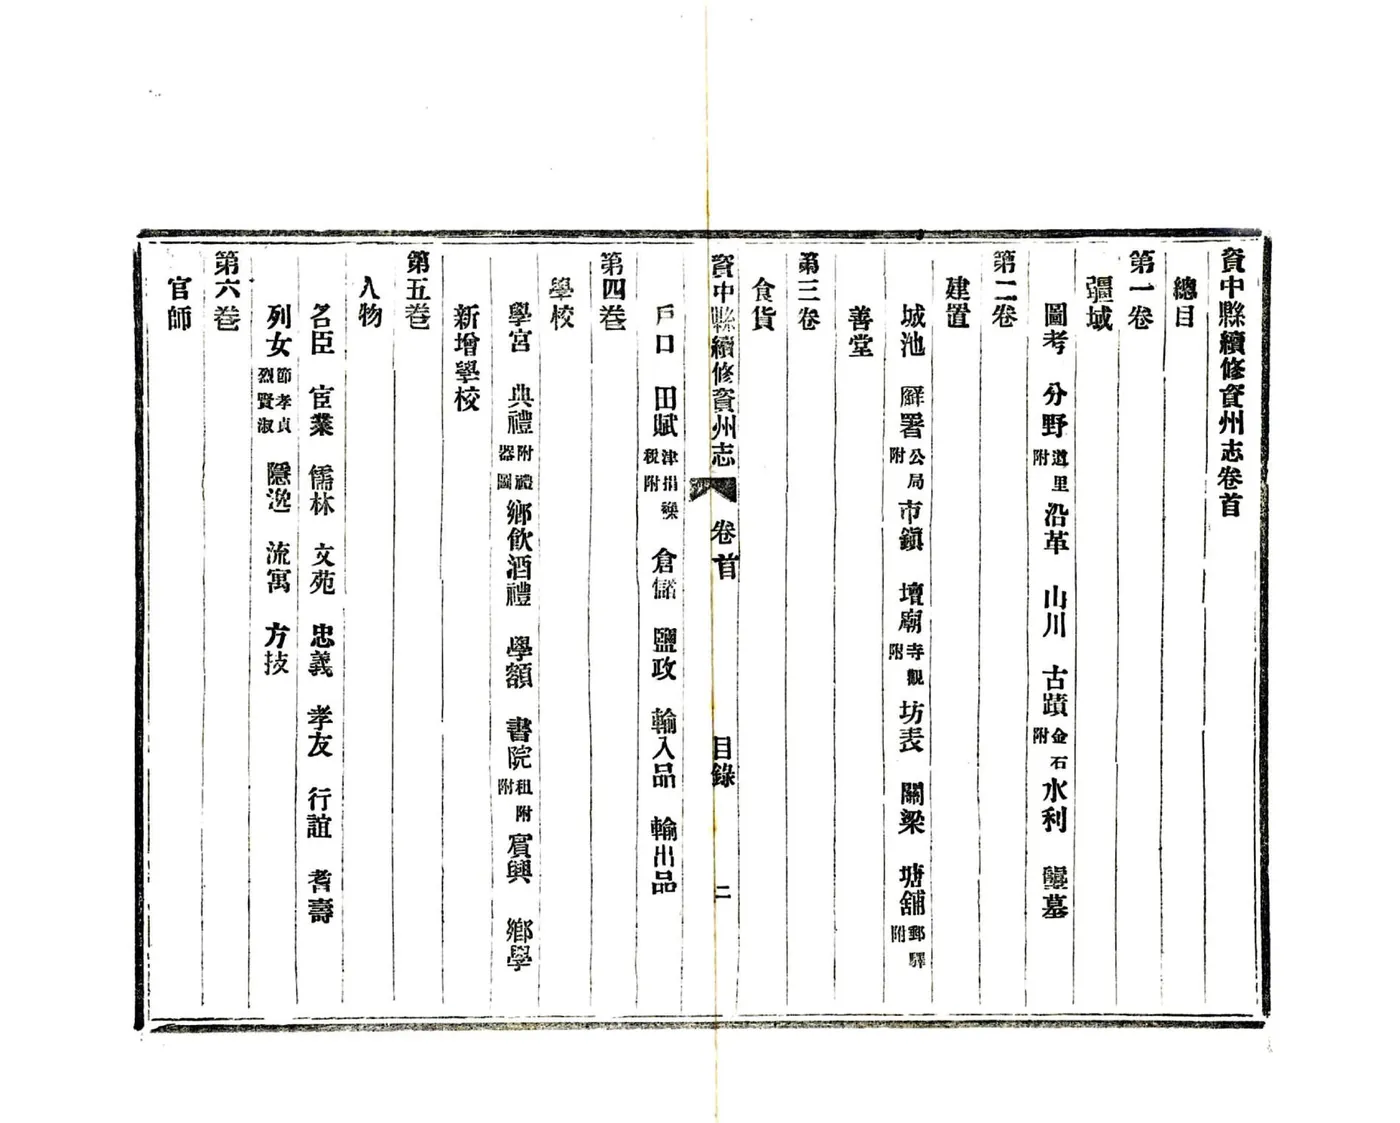 資中縣續修資州志卷首
總目
第一卷
疆域
圖考 分野 道里附 沿革 山川 古蹟 金石附 水利 塋墓
第二卷
建置
城池 廨署 公局附 市鎮 壇廟 寺觀附 坊表 關梁 塘舖 郵驛附
善堂
第三卷
食貨
資中縣續修資州志 卷首 目錄 二
戶口 田賦 津捐襍稅附 倉儲 鹽政 輸入品 輸出品
第四卷
學校
學宮 典禮 附禮器圖 鄉飲酒禮 學額 書院 租附附 賓興 鄉學
新增學校
第五卷
人物
名臣 宦業 儒林 文苑 忠義 孝友 行誼 耆壽
列女 節孝貞烈賢淑 隱逸 流寓 方技
第六卷
官師